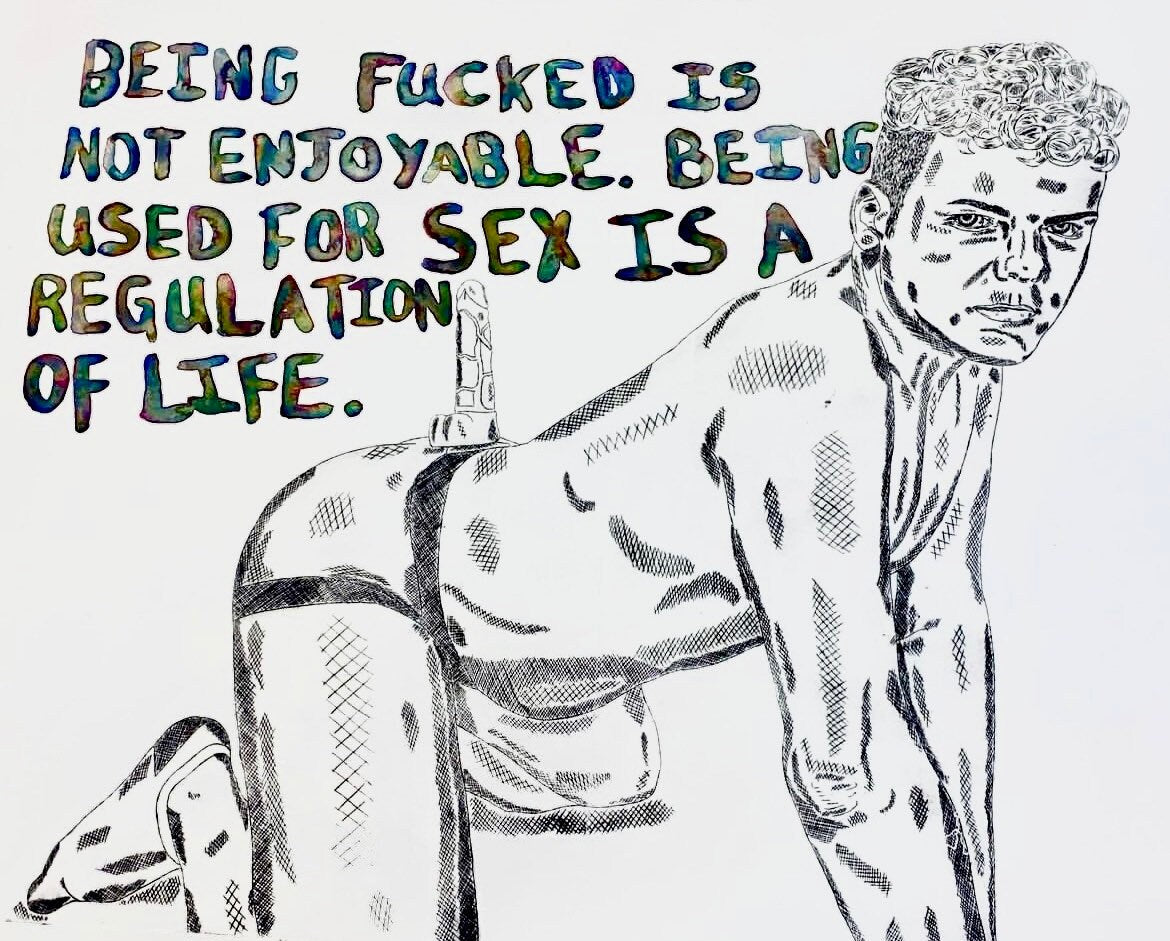 BEING FUCKED IS
NOT ENJOYABLE. BEING
USED FOR SEX IS A
REGULATION
OF LIFE.